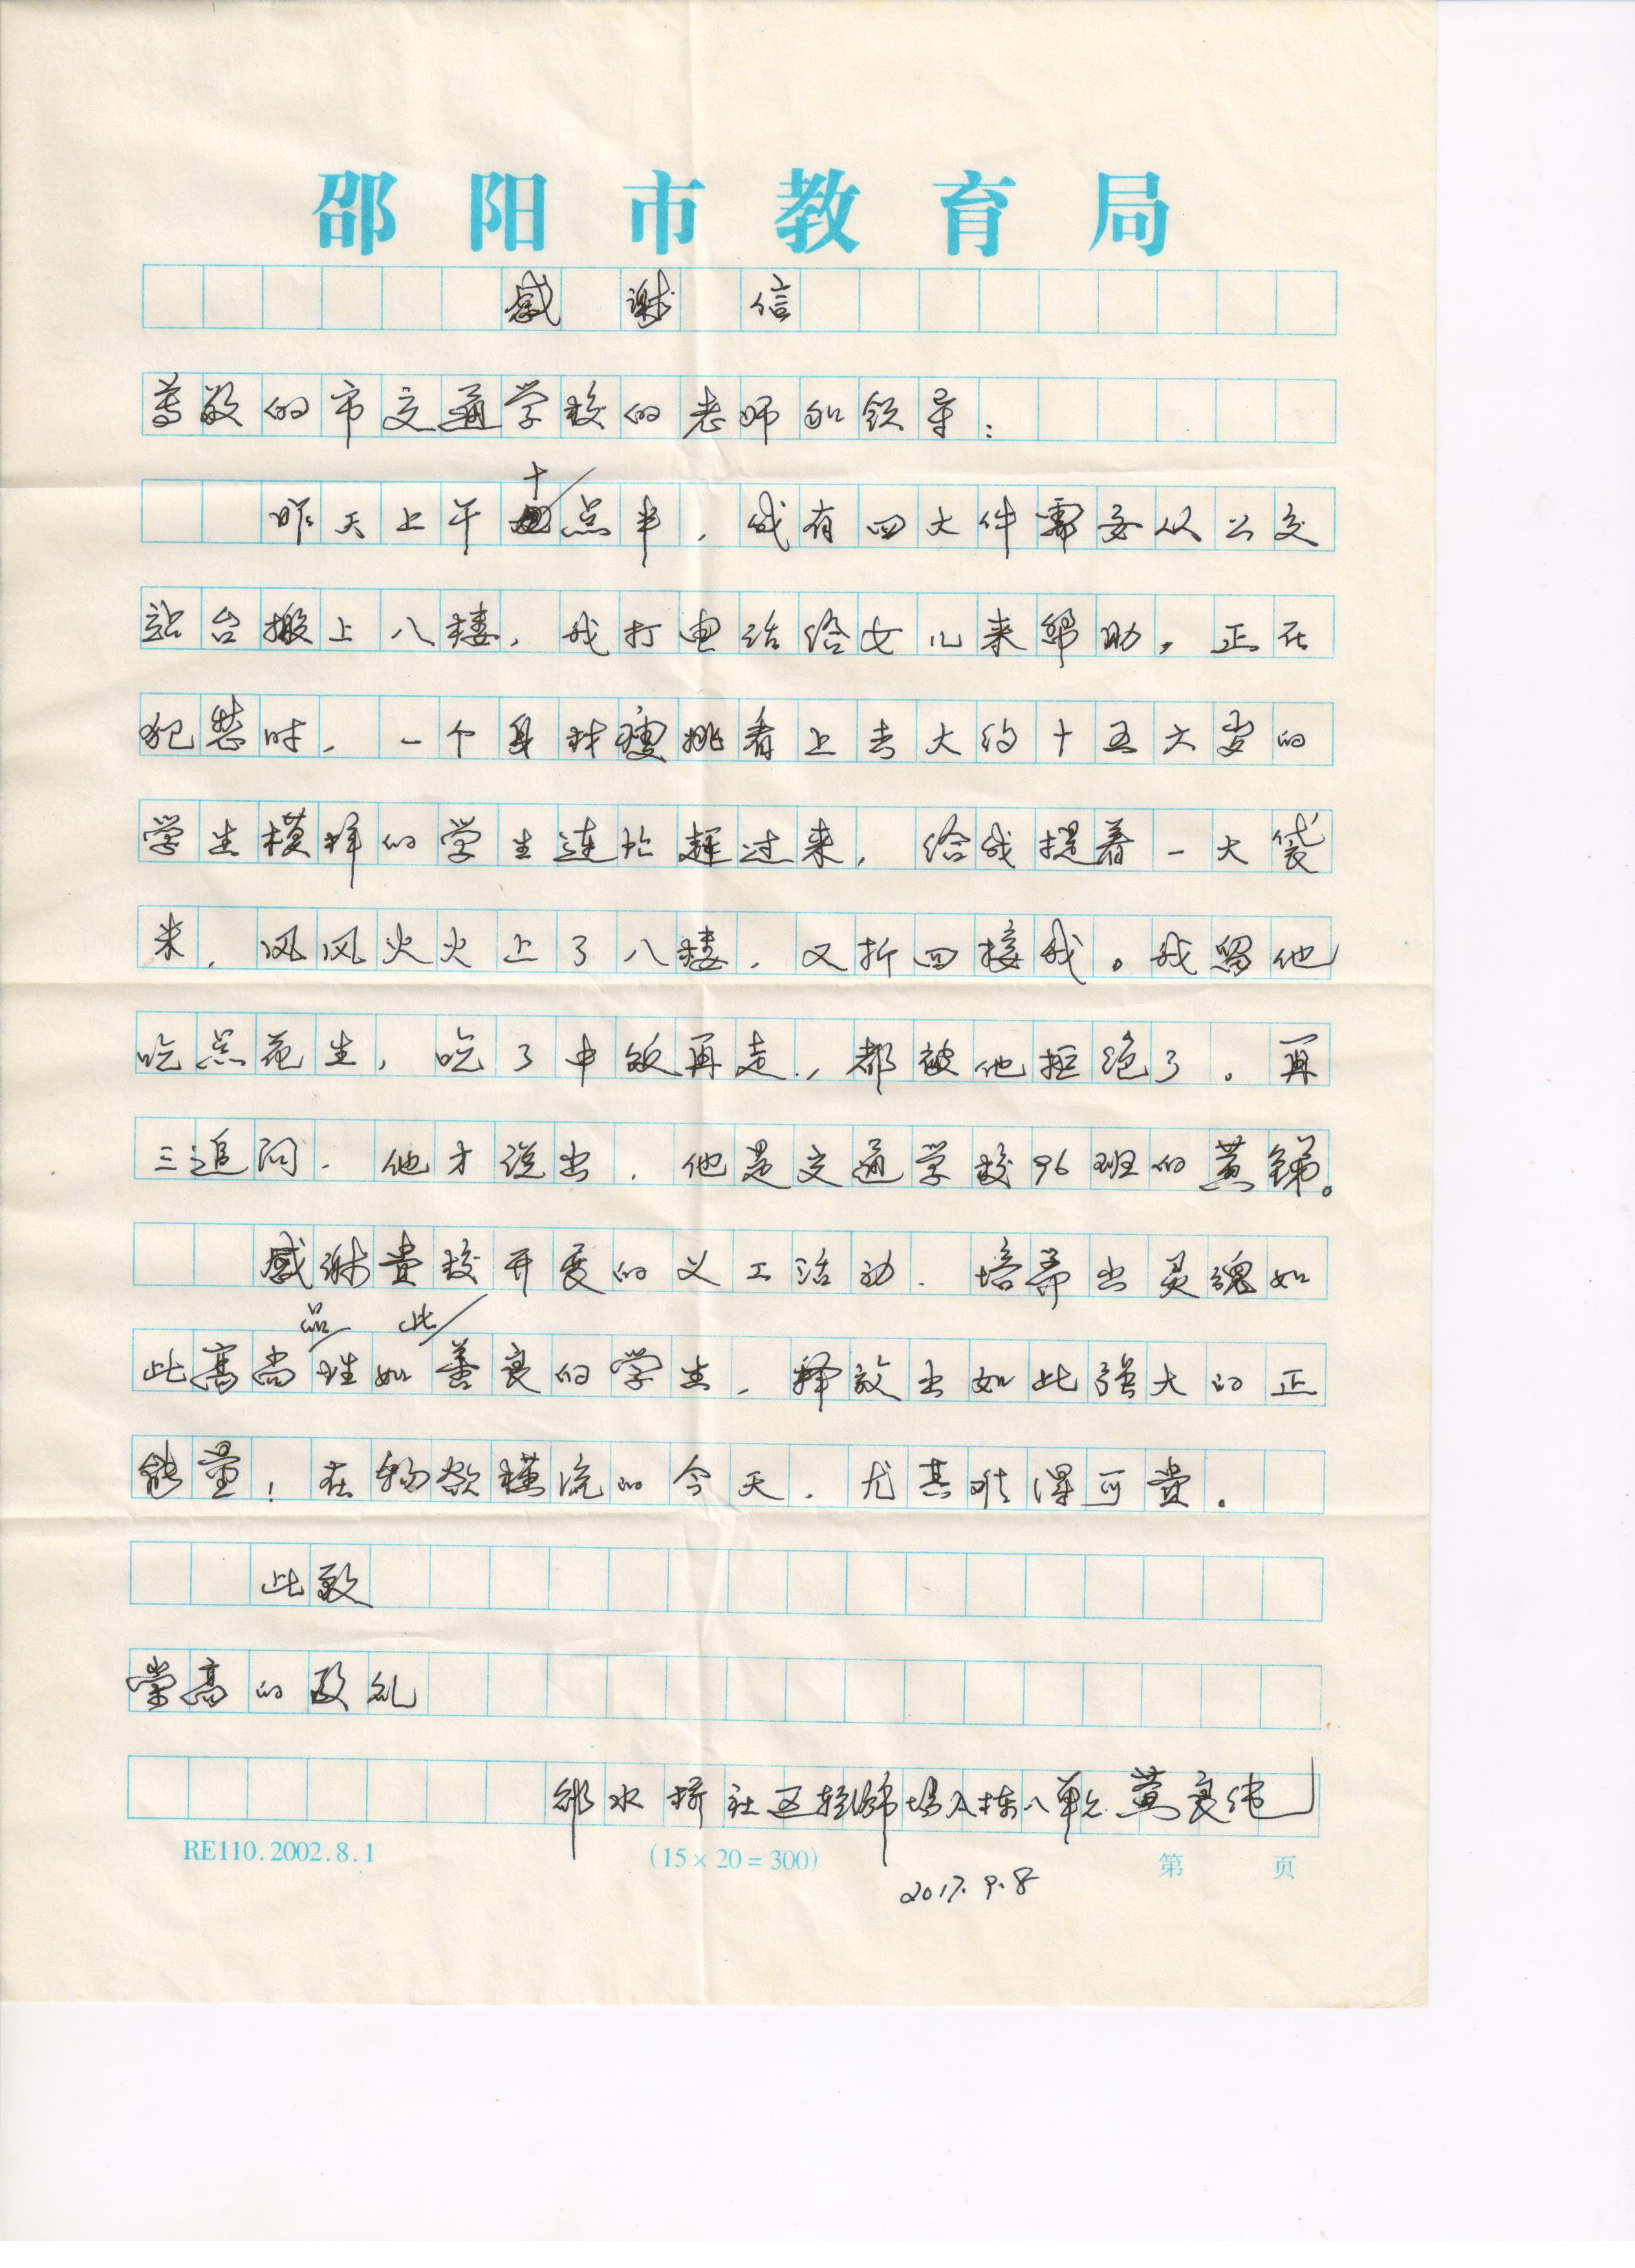 邵阳市教育局
感谢信
尊敬的市交通学校的老师和领导：
昨天上午十点半，我有四大件需要从公交
站台搬上八楼，我打电话给女儿来帮助，正在
犯愁时，一个身材瘦挑看上去大约十五六岁的
学生模样的学生连忙赶过来，给我提着一大袋
米，风风火火上了八楼，又折回接我。我留他
吃点花生，吃了中饭再走，都被他拒绝了。再
三追问，他才说出，他是交通学校96班的黄锑。
感谢贵校开展的义工活动，培养出灵魂如
此高尚品性如此善良的学生，释放出如此强大的正
能量！在物欲横流的今天，尤其难得可贵。
此致
崇高的敬礼
邵水桥社区 八单元 黄良纯
RE110.2002.8.1 (15×20=300) 第 页
2017.9.8